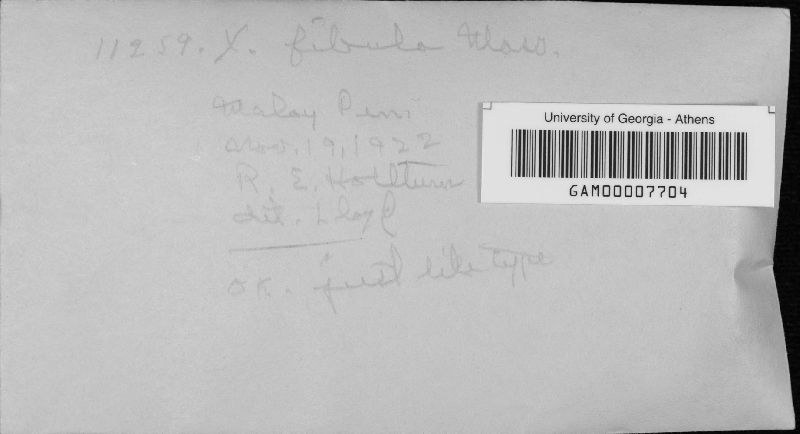 11259. X. fibula Mass.
Malay Peni
Nov. 19, 1922
R. E. Holttum
det. Lloyd
OK. just like type
University of Georgia - Athens
GAM00007704